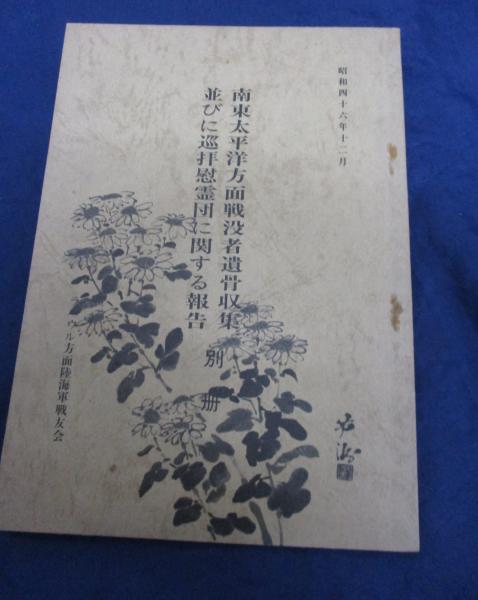 昭和四十六年十二月
南東太平洋方面戦没者遺骨収集
並びに巡拝慰霊団に関する報告
別冊
ウル方面陸海軍戦友会